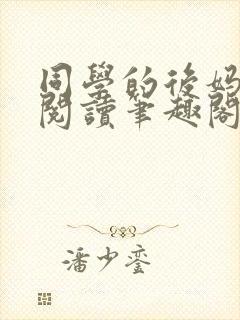 同學的後媽
閱讀筆趣閣
潘少鑾